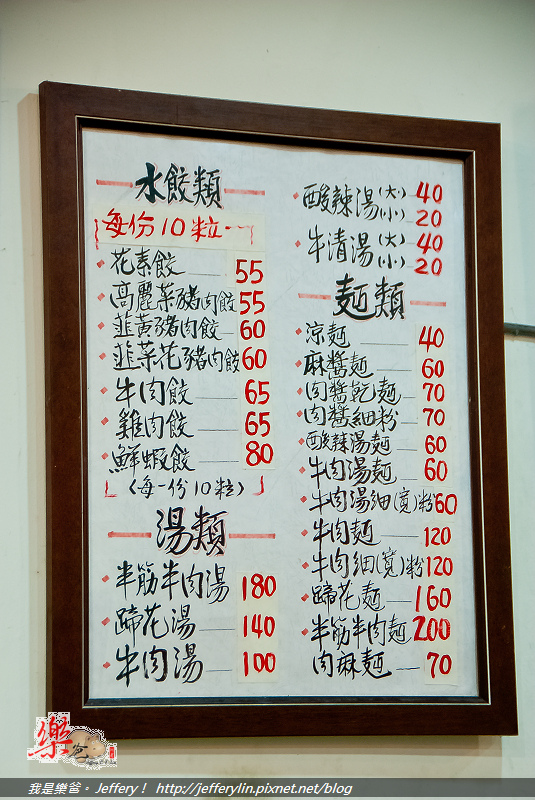 水餃類
每份10粒
花素餃 55
高麗菜豬肉餃 55
韮黃豬肉餃 60
韮菜花豬肉餃 60
牛肉餃 65
雞肉餃 65
鮮蝦餃 80
(每一份10粒)
湯類
半筋半肉湯 180
蹄花湯 140
牛肉湯 100
酸辣湯(大) 40
(小) 20
牛清湯(大) 40
(小) 20
麵類
涼麵 40
麻醬麵 60
肉醬乾麵 70
肉醬細粉 70
酸辣湯麵 60
牛肉湯麵 60
牛肉湯細(寬)粉 60
牛肉麵 120
牛肉細(寬)粉 120
蹄花麵 160
半筋半肉麵 200
肉麻麵 70
樂爸
我是樂爸。Jeffery! http://jefferylin.pixnet.net/blog